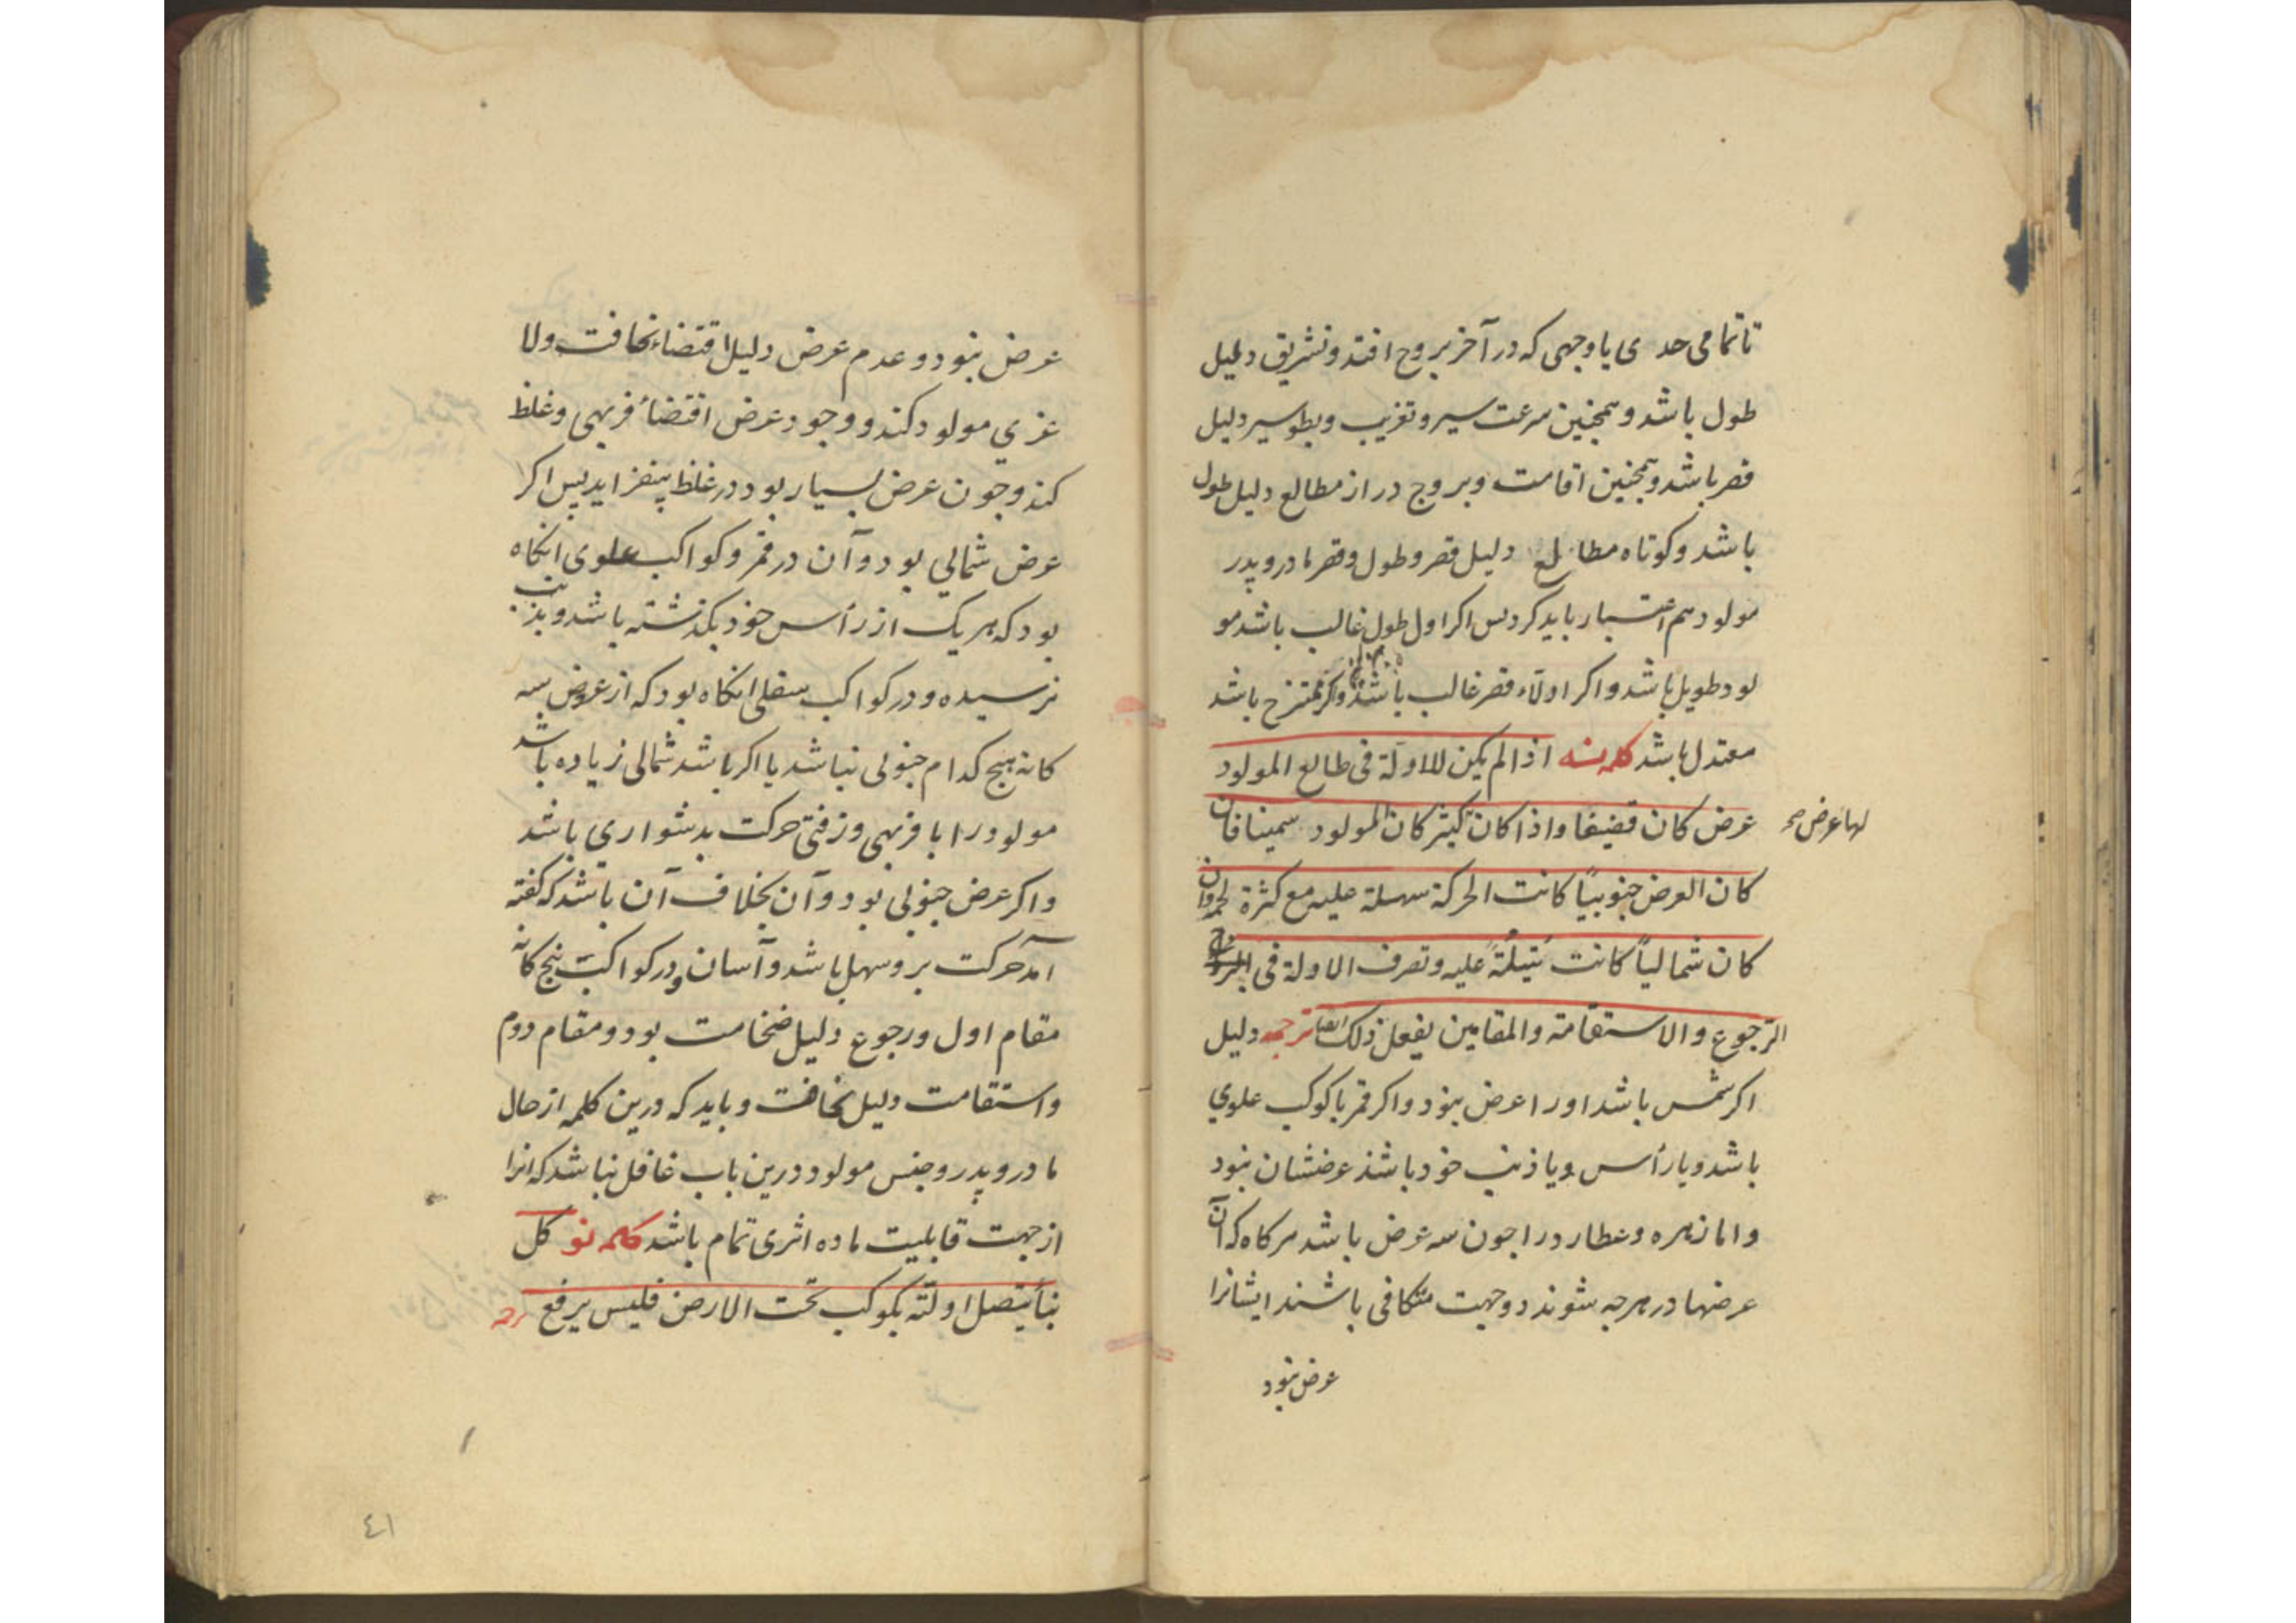 تا تمامی حدی یا وجهی که در آخر بروج افتد و تشریق دلیل
طول باشد و همچنین سرعت سیر و تغریب و بطو سیر دلیل
قصر باشد و همچنین اقامت و بروج دراز مطالع دلیل طول
باشد و کوتاه مطالع دلیل قصر و طول و قصر مادر و پدر
مولود هم اعتبار باید کرد پس اکر اول طول غالب باشد مو
لود طویل باشد و اکر اولاء قصر غالب باشد و اکر ممتزج باشد
معتدل باشد کلمه نه اذا لم یکن للاولة فی طالع المولود
عرض کان قضیفا و اذا کان کثیر کان المولود سمینا فان
لها عرض صح
کان العرض جنوبیاً کانت الحرکة سهلة علیه مع کثرة لحمه وان
کان شمالیاً کانت ثقیلةً علیه و تصرف الاولة فی
الرجوع والاستقامة والمقامین یفعل ذلک ایضا ترجمه دلیل
اکر شمس باشد او را عرض نبود و اکر قمر یا کوکب علوي
باشد و با رأس و یا ذنب خود باشذ عرضشان نبود
و اما زهره و عطارد را جون سه عرض باشد هر کاه که آن
عرضها در هرجه شوند دو جهت متکافی باشند ایشانرا
عرض نبود
عرض نبود و عدم عرض دلیل اقتضاء نحافت و لا
غري مولود کند و وجود عرض اقتضاء فربهی و غلظ
کند و جون عرض بسیار بود در غلظ بیفزاید پس اکر
عرض شمالي بود و آن در قمر و کواکب علوی انکاه
بود که هر یک از رأس خود بکذشته باشد و بذنب
نرسیده و در کواکب سفلی انکاه بود که از عروض سه
کانه هیج کدام جنوبی نباشد یا اکر باشد شمالی زیاده باشد
مولود را با فربهی و زفتی حرکت بدشواري باشد
و اکر عرض جنوبی بود و آن بخلاف آن باشد که کفته
آمد حرکت برو سهل باشد و آسان و در کواکب پنج کانه
مقام اول و رجوع دلیل ضخامت بود و مقام دوم
و استقامت دلیل نحافت و باید که درین کلمه از حال
مادر و پدر و جنس مولود درین باب غافل نباشد که انرا
از جهت قابلیت ماده اثری تمام باشد کلمه نو کل
نبأ یتصل اولته بکوکب تحت الارض فلیس یرفع ترجمه
٤١